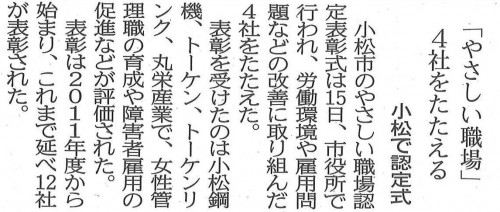 「やさしい職場」
4社をたたえる
小松で認定式
小松市のやさしい職場認
定表彰式は15日、市役所で
行われ、労働環境や雇用問
題などの改善に取り組んだ
4社をたたえた。
表彰を受けたのは小松鋼
機、トーケン、トーケンリ
ンク、丸栄産業で、女性管
理職の育成や障害者雇用の
促進などが評価された。
表彰は2011年度から
始まり、これまで延べ12社
が表彰された。